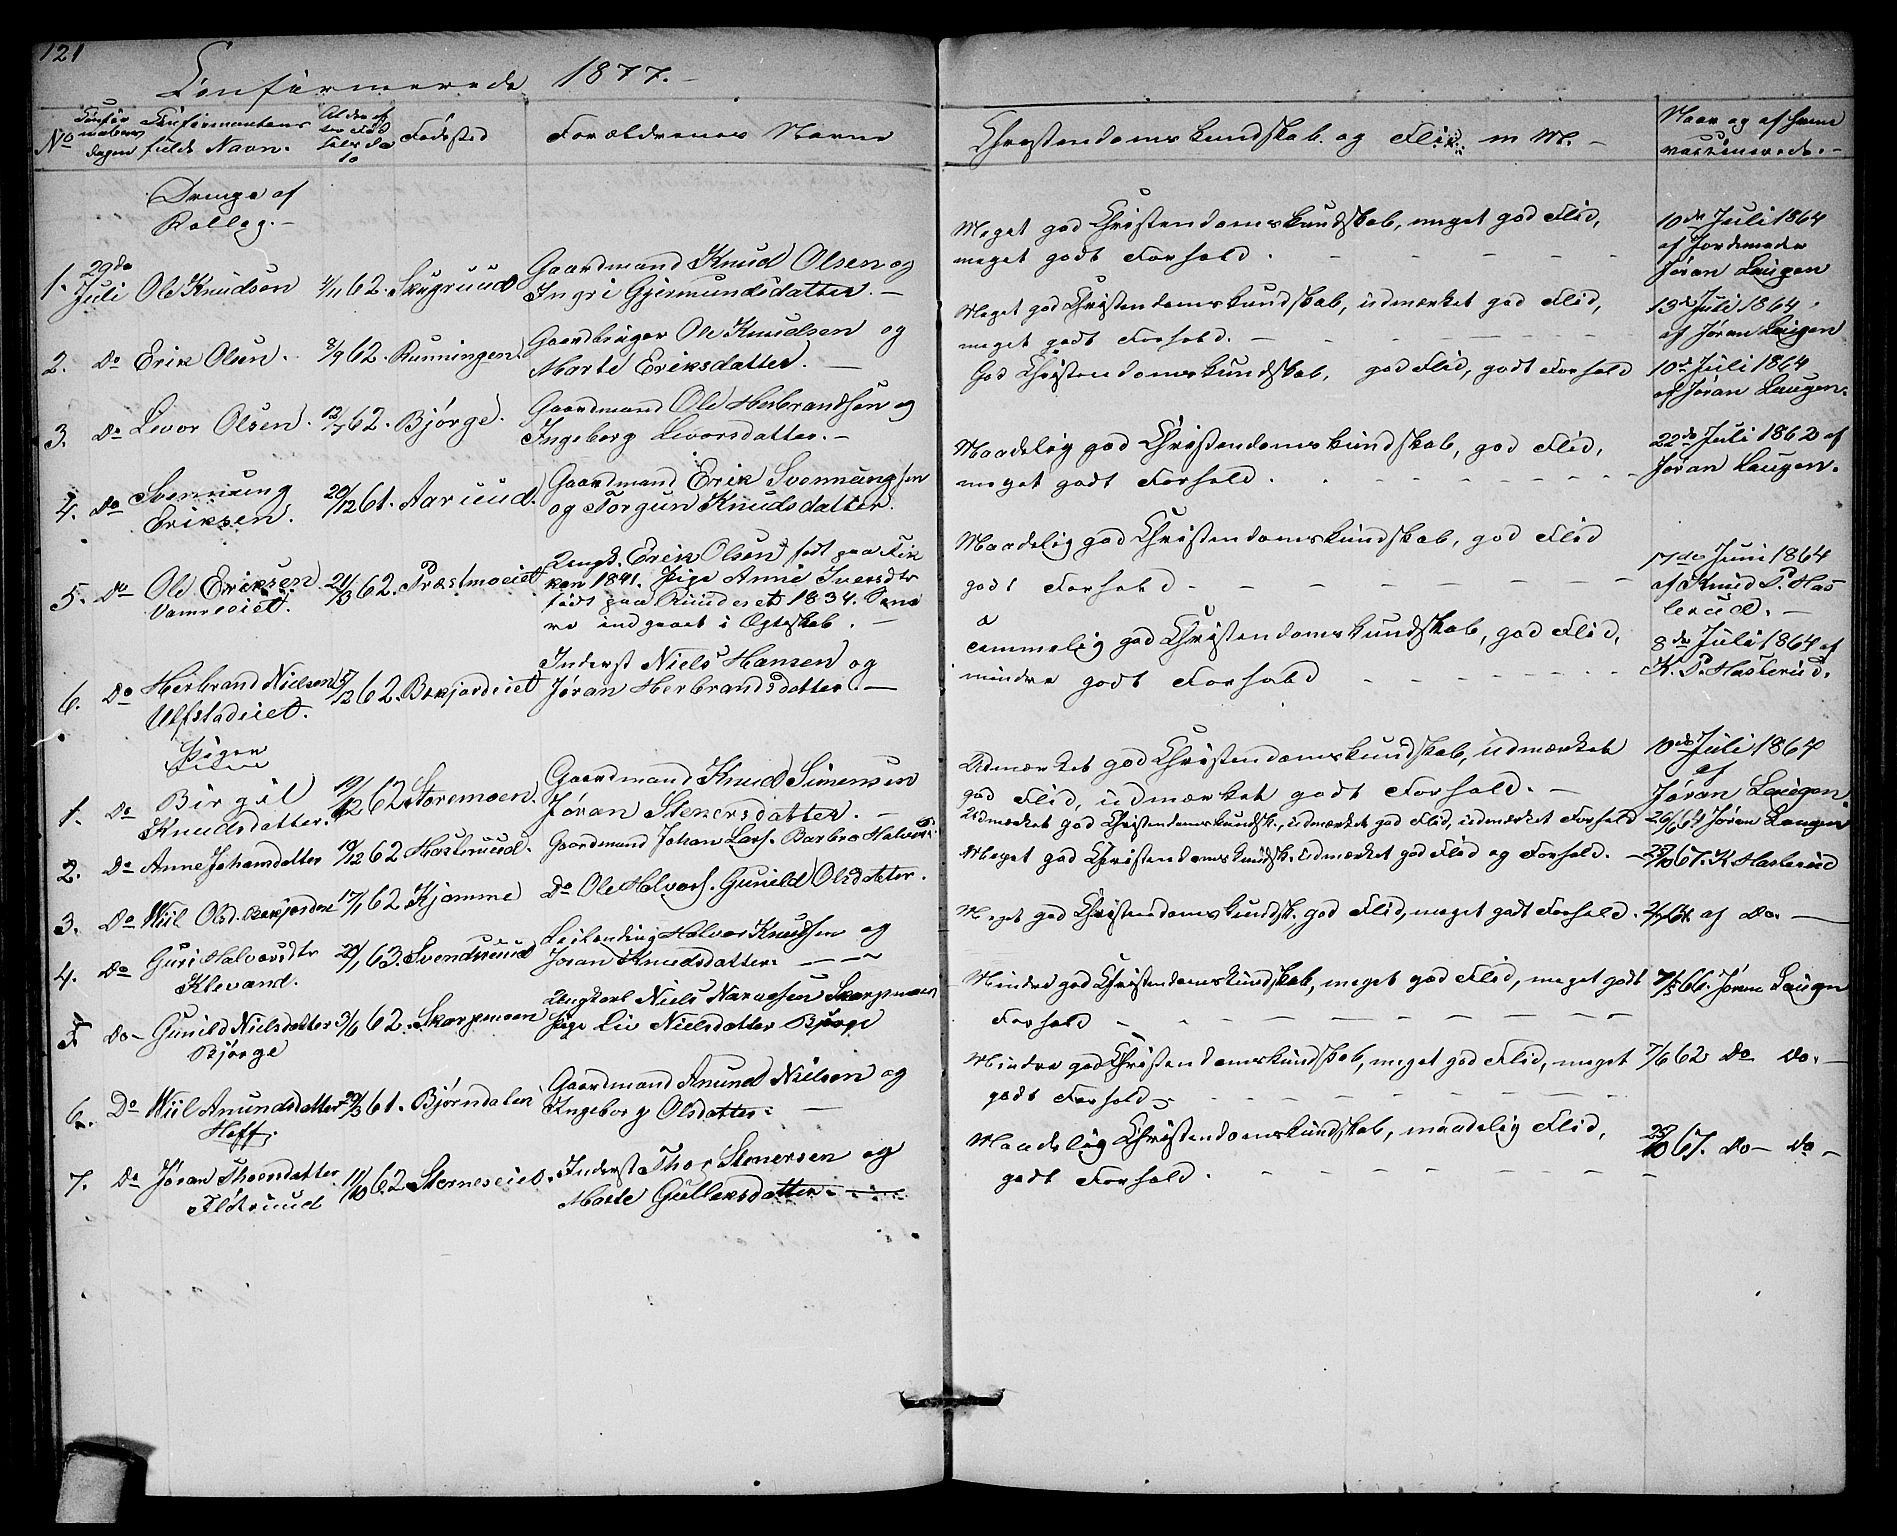 121
Confirmerede 1877.
No
Confirmantens fulde Navn.
Fødested
Forældrenes Navne
Christendomskundskab og Flid m M. -
Naar og af hvem vaccinerede. -
Drenge af
Rolleg. -
1. 29de Juli Ole Knudsen 62. Skugruud Gaardmand Knud Olsen og
Ingri Gjermundsdatter. -
Meget god Christendomskundskab, meget god Flid,
meget godt Forhold.
10de Juli 1864
af Jordemoder
Jøran Laugen
2. Do Erik Olsen. 8/9 62. Runningen. Gaardbruger Ole Knudsen og
Marte Eriksdatter. -
Meget god Christendomskundskab, udmærket god Flid,
meget godt Forhold. -
13de Juli 1864
af Jøran Laugen
3. Do Levor Olsen. 12/7 62. Bjørge. Gaardmand Ole Herbrandsen og
Ingeborg Levorsdatter. -
God Christendomskundskab, god Flid, godt Forhold
10de Juli 1864
af Jøran Laugen.
4. Do Svennung
Eriksen. 20/12 61. Aaruud. Gaardmand Erik Svennungsen
og Torgun Knudsdatter.
Maadelig god Christendomskundskab, god Flid,
meget godt Forhold.
22de Juli 1862 af
Jøran Laugen.
5. Do Ole Eriksen 21/3 62. Præstmoeiet Ungk. Erik Olsen født paa
1841. Pige Anne Iversdtr
født paa Ruuderet 1834. Sene
re indgaaet i Ægteskab. -
Maadelig god Christendomskundskab, god Flid
godt Forhold -
17de Juni 1864
af Knud P. Has
lerud. -
6. Do Herbrand Nielsen
Ulfstadeiet. 62. Bekjordeiet Inderst Niels Hansen og
Jøran Herbrandsdatter. -
Temmelig god Christendomskundskab, god Flid,
mindre godt Forhold
8de Juli 1864 af
K. P. Haslerud.
Piger
1. Do Birgit
Knudsdatter. 62 Storemoen. Gaardmand Knud Simensen
Jøran Stenersdatter. -
Udmærket god Christendomskundskab, udmærket
god Flid, udmærket godt Forhold. -
10de Juli 1864
af
Jøran Laugen.
2. Do Anne Johansdatter 10/12 62 Hasleruud. Gaardmand Johan Lars. Barbro Halvors
Udmærket god Christendomskundsk., udmærket god Flid, udmærket Forhold 26/6 64 Jøran Laugen
3. Do Wiil Olsd. Bekjorden 17/1 62 Kjomme Do Ole Halvors. Gunild Olsdatter.
Meget god Christendomskundsk. udmærket god Flid og Forhold. - 67. K Haslerud
4. Do Guri Halvorsdtr
Klevand. 63. Svendsruud Leilending Halvor Knudsen og
Jøran Knudsdatter.
Meget god Christendomskundsk. god Flid, meget godt Forhold. af Do. -
5 Do - Gunild Nielsdatter
Bjørge 62. Skarpmoen Ungkarl Niels Skarpmoen
Pige Liv Nielsdatter Bjørge
Mindre god Christendomskundskab, meget god Flid, meget godt 7/5 66. Jøran Laugn
Forhold -
6. Do Wiil Anundsdatter
Hoff. 61. Bjørndalen Gaardmand Anund Nielsen og
Ingeborg Olsdatter. -
Mindre god Christendomskundskab, meget god Flid, meget 7/6 62 Do Do. -
godt Forhold -
7. Do Jøran Thorsdatter
Fløtruud 11/10 62 Sterneseiet. Inderst Thor Stenersen og
Marte Gullersdatter.
Maadelig Christendomskundskab, maadelig Flid, 67. Do - Do -
godt Forhold.